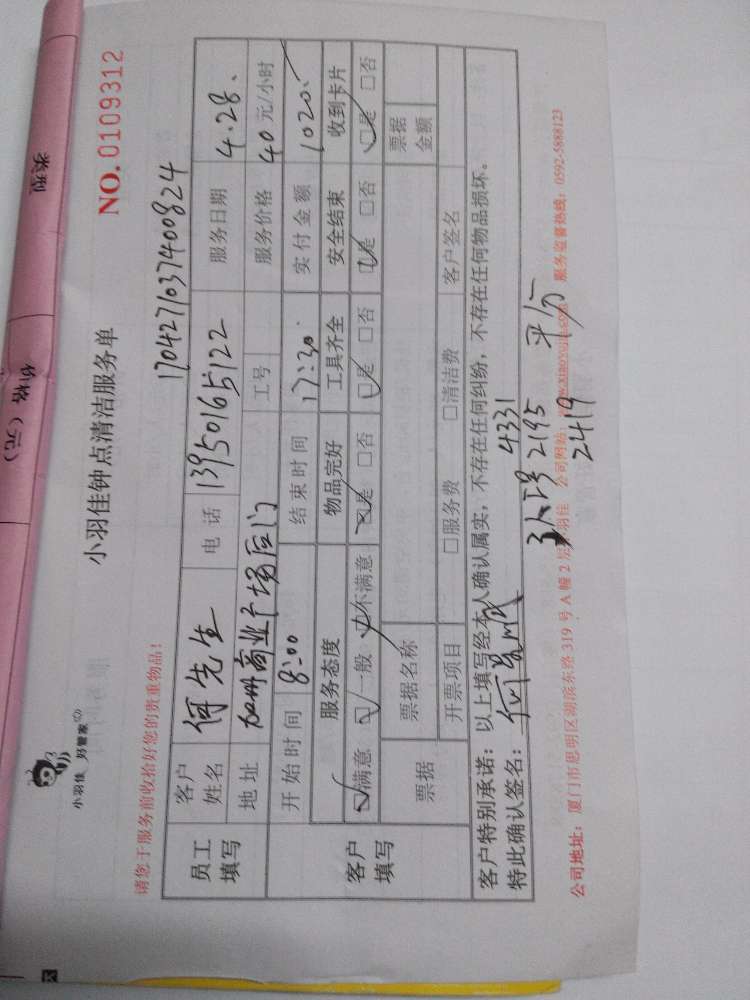 类型
价格（元）
小羽佳 好管家
小羽佳钟点清洁服务单
NO. 0109312
请您于服务前收拾好您的贵重物品！
1704271037400824
员工填写
客户姓名 何先生 电话 13950165122 服务日期 4.28.
地址 加州商业广场后门 工号 服务价格 40 元/小时
客户填写
开始时间 8:00 结束时间 17:30. 实付金额 1020.
服务态度 物品完好 工具齐全 安全结束 收到卡片
☑满意 ☑一般 ☑不满意 ☑是 □否 ☑是 □否 ☑是 □否 ☑是 □否
票据 票据名称 票据金额
开票项目 □服务费 □清洁费 客户签名
客户特别承诺：以上填写经本人确认属实，不存在任何纠纷，不存在任何物品损坏。
特此确认签名： 4331
3人工号 2195 平分
2419
公司地址：厦门市思明区湖滨东路 319 号 A 幢 2 层 羽佳 公司网站：www.xiaoyujia.com 服务监督热线：0592-5888123